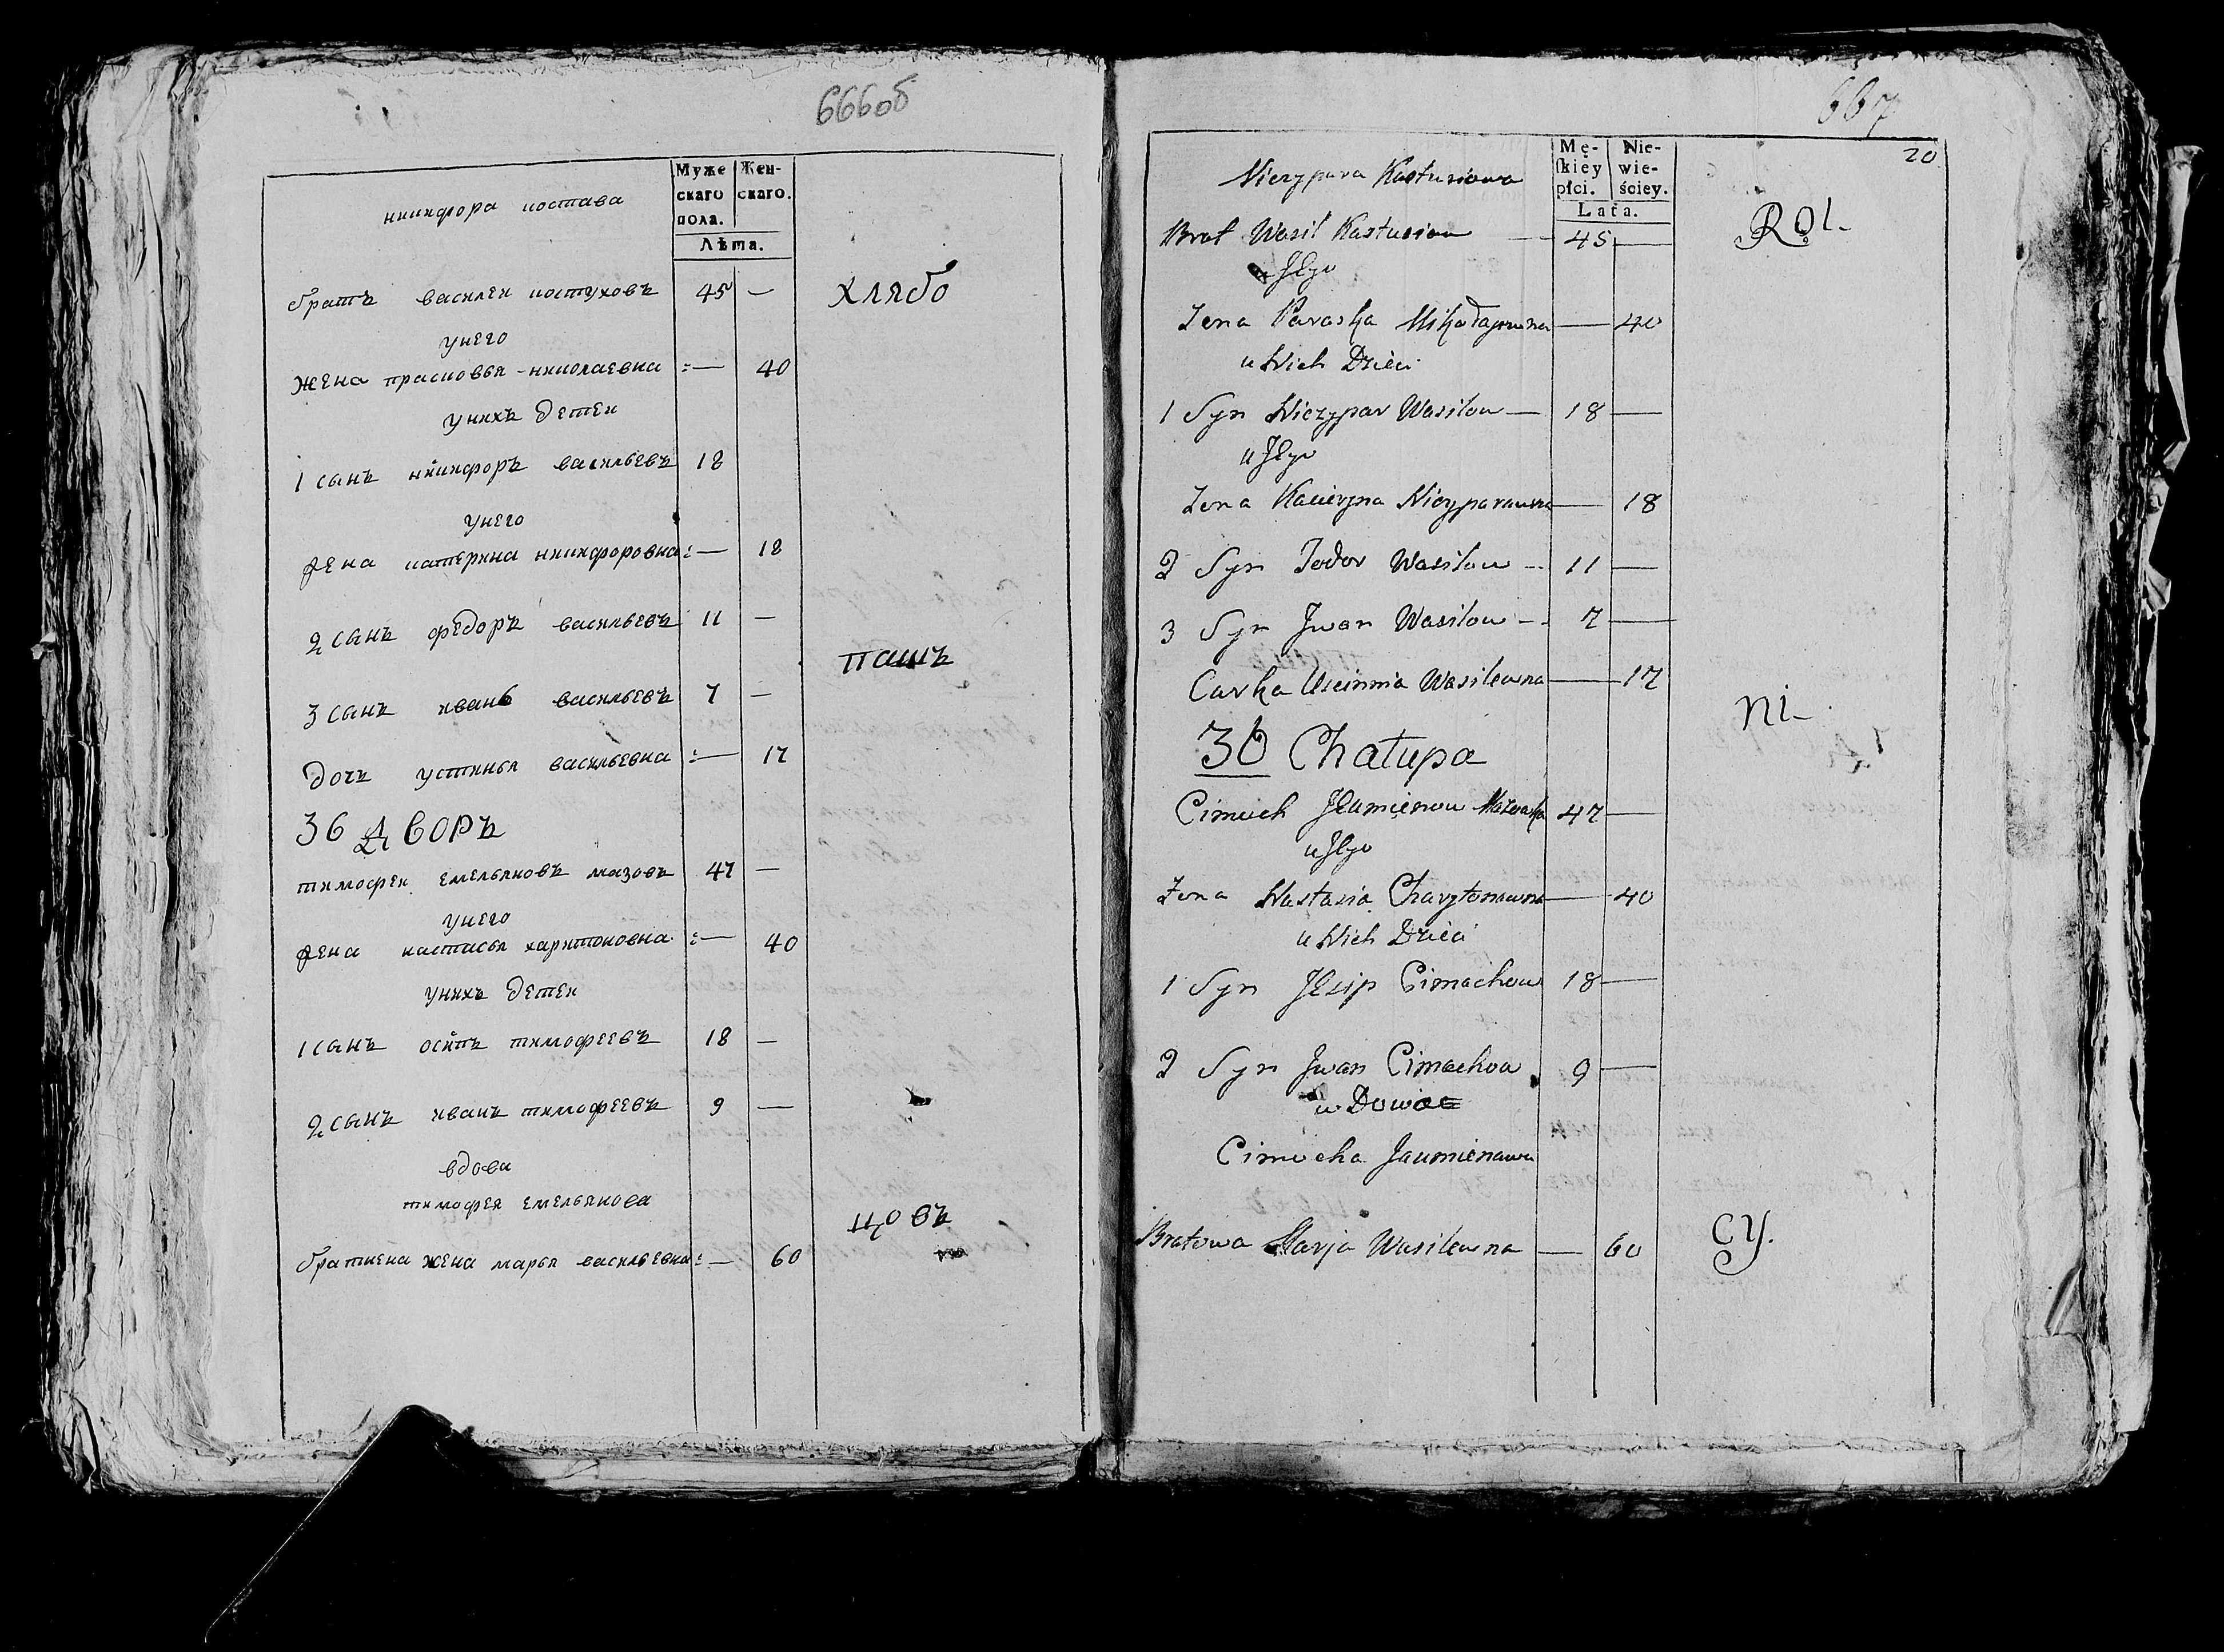 666об
Муже
скаго
пола.
Жен-
скаго.
Лѣта.
никифора костава
братъ василеи костуховъ 45 —
хлябо
унего
жена прасковья николаевна — 40
унихъ детеи
1 сынъ никифоръ васильевъ 18
унего
жена катерина никифоровна — 18
2 сынъ федоръ васильевъ 11 —
пашъ
3 сынъ иванъ васильевъ 7 —
дочь устинья васильевна — 17
36 дворъ
тимофеи емельяновъ мазовъ 47 —
унего
жена настасья харитоновна — 40
унихъ детеи
1 сынъ осипъ тимофеевъ 18 —
2 сынъ иванъ тимофеевъ 9 —
вдова
тимофея емельянова
цовъ
братнена жена марья васильевна — 60
667
20
Mę-
skiey
płci.
Nie-
wie-
ściey.
Lata.
Niczypara Kastusiowa
Rol-
Brat Wasil Kastusiow — 45 —
u Jego
Zena Paraska Mikołajowna — 40
u Nich Dzieci
1 Syn Niczypar Wasilow — 18 —
u Jego
Zena Kacieryna Niczyparowna — 18
2 Syn Fodor Wasilow — 11 —
3 Syn Jwan Wasilow — 7 —
Carka Uscinnia Wasilewna — 17
ni-
36 Chałupa
Cimoch Jeumienow 47 —
u Jego
Zena Nastasia Charytonowna — 40
u Nich Dzieci
1 Syn Jesip Cimochow 18 —
2 Syn Jwan Cimochow 9 —
w Dowa
Cimocha Jaumienowa
cy.
Bratowa Marja Wasilewna — 60